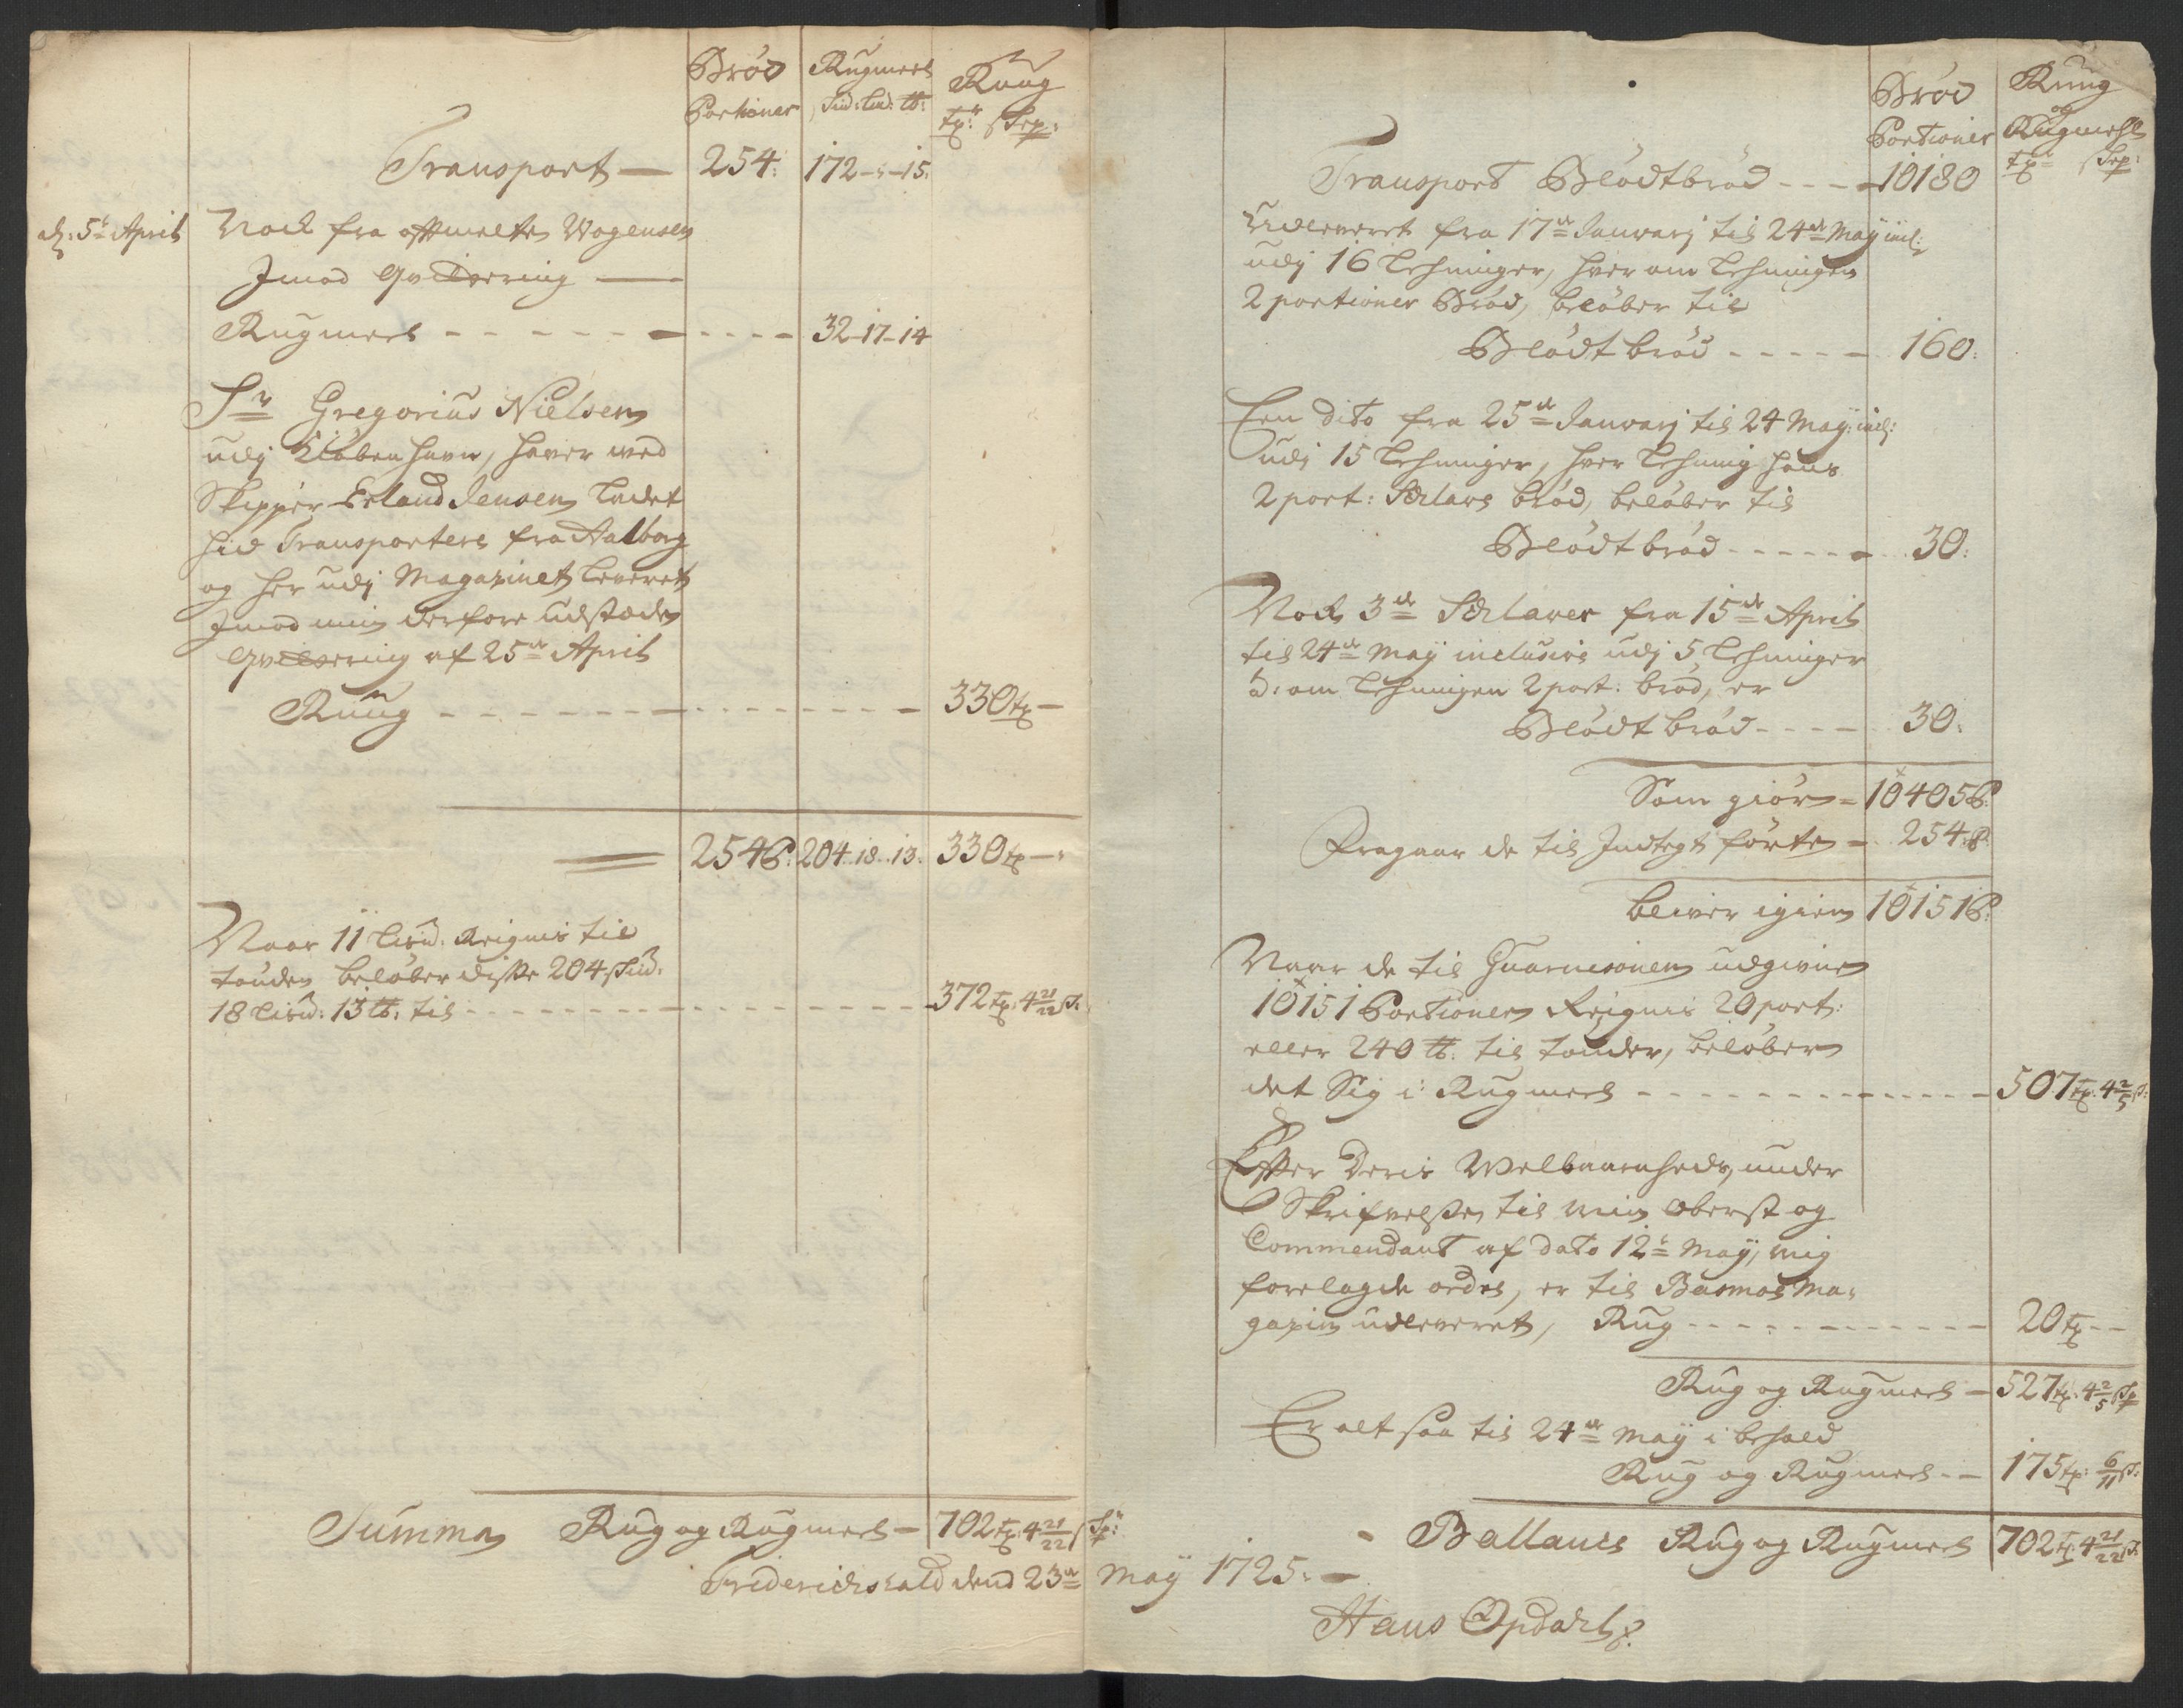 Brød Rugmeel Ruug
Portioner Skd: Lisd: ℔: tr: Skp:
Transport — 254: 172 - " - 15:
d: 5te April Noch fra offmelte Wogensen
Jmod Qvitering —
Rugmeel - - - - - - 32 - 17 - 14
Sr Gregorius Nielsen
udj Kiøbenhavn, haver med
Skipper Erland Jensen ladet
hid Transportere fra Aalborg
og her udj Magazinet leveret
Jmod min derfore udstæde
Qvitering af 25de April
Ruug - - - - - - 330 tr —
254 P: 204 . 18 .. 13: 330 tr — "
Naar 11 Lisd: Reignis til
tønden beløber disse 204 Skd:
18 Lisd: 13 ℔: til - - - - - - 372 tr: 4 21/22 S:
Summa Rug og Rugmeel — 702 tr: 4 21/22 Skp:
Friderichshald dend 23de May 1725: —
Brød Ruug
og
Portioner Rugmehl
tr: Skp:
Transport Blødtbrød - - - 10180
Udleveret fra 17de Januarj til 24de May incl:
udj 16 Lehninger, hver om Lehningen
2 portioner Brød, beløber til
Blødtbrød - - - - - 160:
Een dito fra 25de Januarj til 24 May: incl:
udj 15 Lehninger, hver Lehning hans
2 port: Sclavs brød, beløber til
Blødtbrød - - - - - 30:
Noch 3de Sclaver fra 15de April
til 24de May inclusive udj 5 Lehninger
á: om Lehningen 2 port: brød, er
Blødtbrød - - - - 30:
Som giør = 10405 P:
Fragaar de til Jndtegt førte = 254: P:
bliver igien 10151 P:
Naar de til Guarnisonen udgivne
10151 Portioner Reignis 20 port:
eller 240 ℔: til tønder, beløber
det Sig i Rugmeel - - - - - - 507 tr: 4 2/5 S:
Effter Deris Welbaarnheds, under
Skrifvelsse til min Oberst og
Commendant af dato 12te May, mig
forelagde ordre, er til Basmoe Ma-
gazin udleveret, Rug - - - - - - 20 tr - -
Rug og Rugmeel — 527 tr: 4 2/5 Skp
Er alt saa til 24de May i behold
Rug og Rugmeel - — 175 tr: 6/11 S:
Ballance Rug og Rugmeel 702 tr: 4 21/22 S:
Hans Opdahl